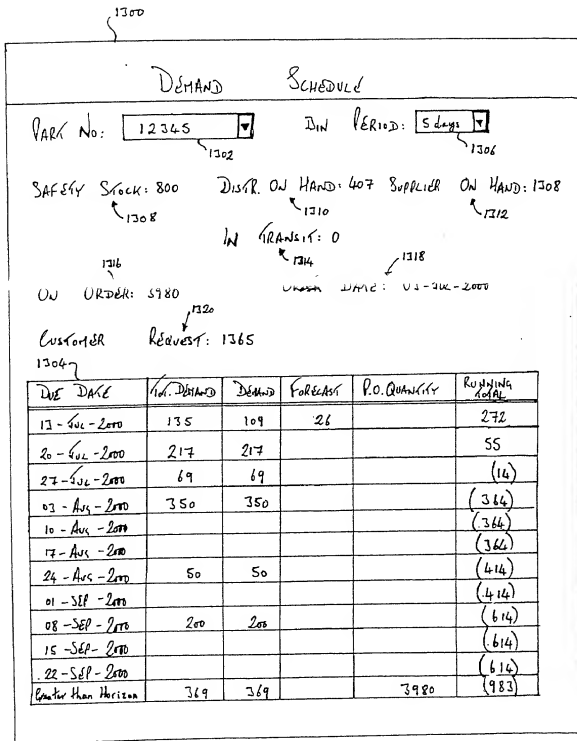 1300
DEMAND SCHEDULE
PART NO: 12345 BIN PERIOD: 5 days
1302 1306
SAFETY STOCK: 800 DISTR. ON HAND: 407 SUPPLIER ON HAND: 1308
1308 1310 1312
IN TRANSIT: 0
1316 1314 1318
ON ORDER: 3980 DATE: 03-JUL-2000
1320
CUSTOMER REQUEST: 1365
1304
DUE DATE TOT. DEMAND DEMAND FORECAST P.O. QUANTITY RUNNING TOTAL
13-JUL-2000 135 109 26 272
20-JUL-2000 217 217 55
27-JUL-2000 69 69 (14)
03-AUG-2000 350 350 (364)
10-AUG-2000 (364)
17-AUG-2000 (364)
24-AUG-2000 50 50 (414)
01-SEP-2000 (414)
08-SEP-2000 200 200 (614)
15-SEP-2000 (614)
22-SEP-2000 (614)
Greater than Horizon 369 369 3980 (983)